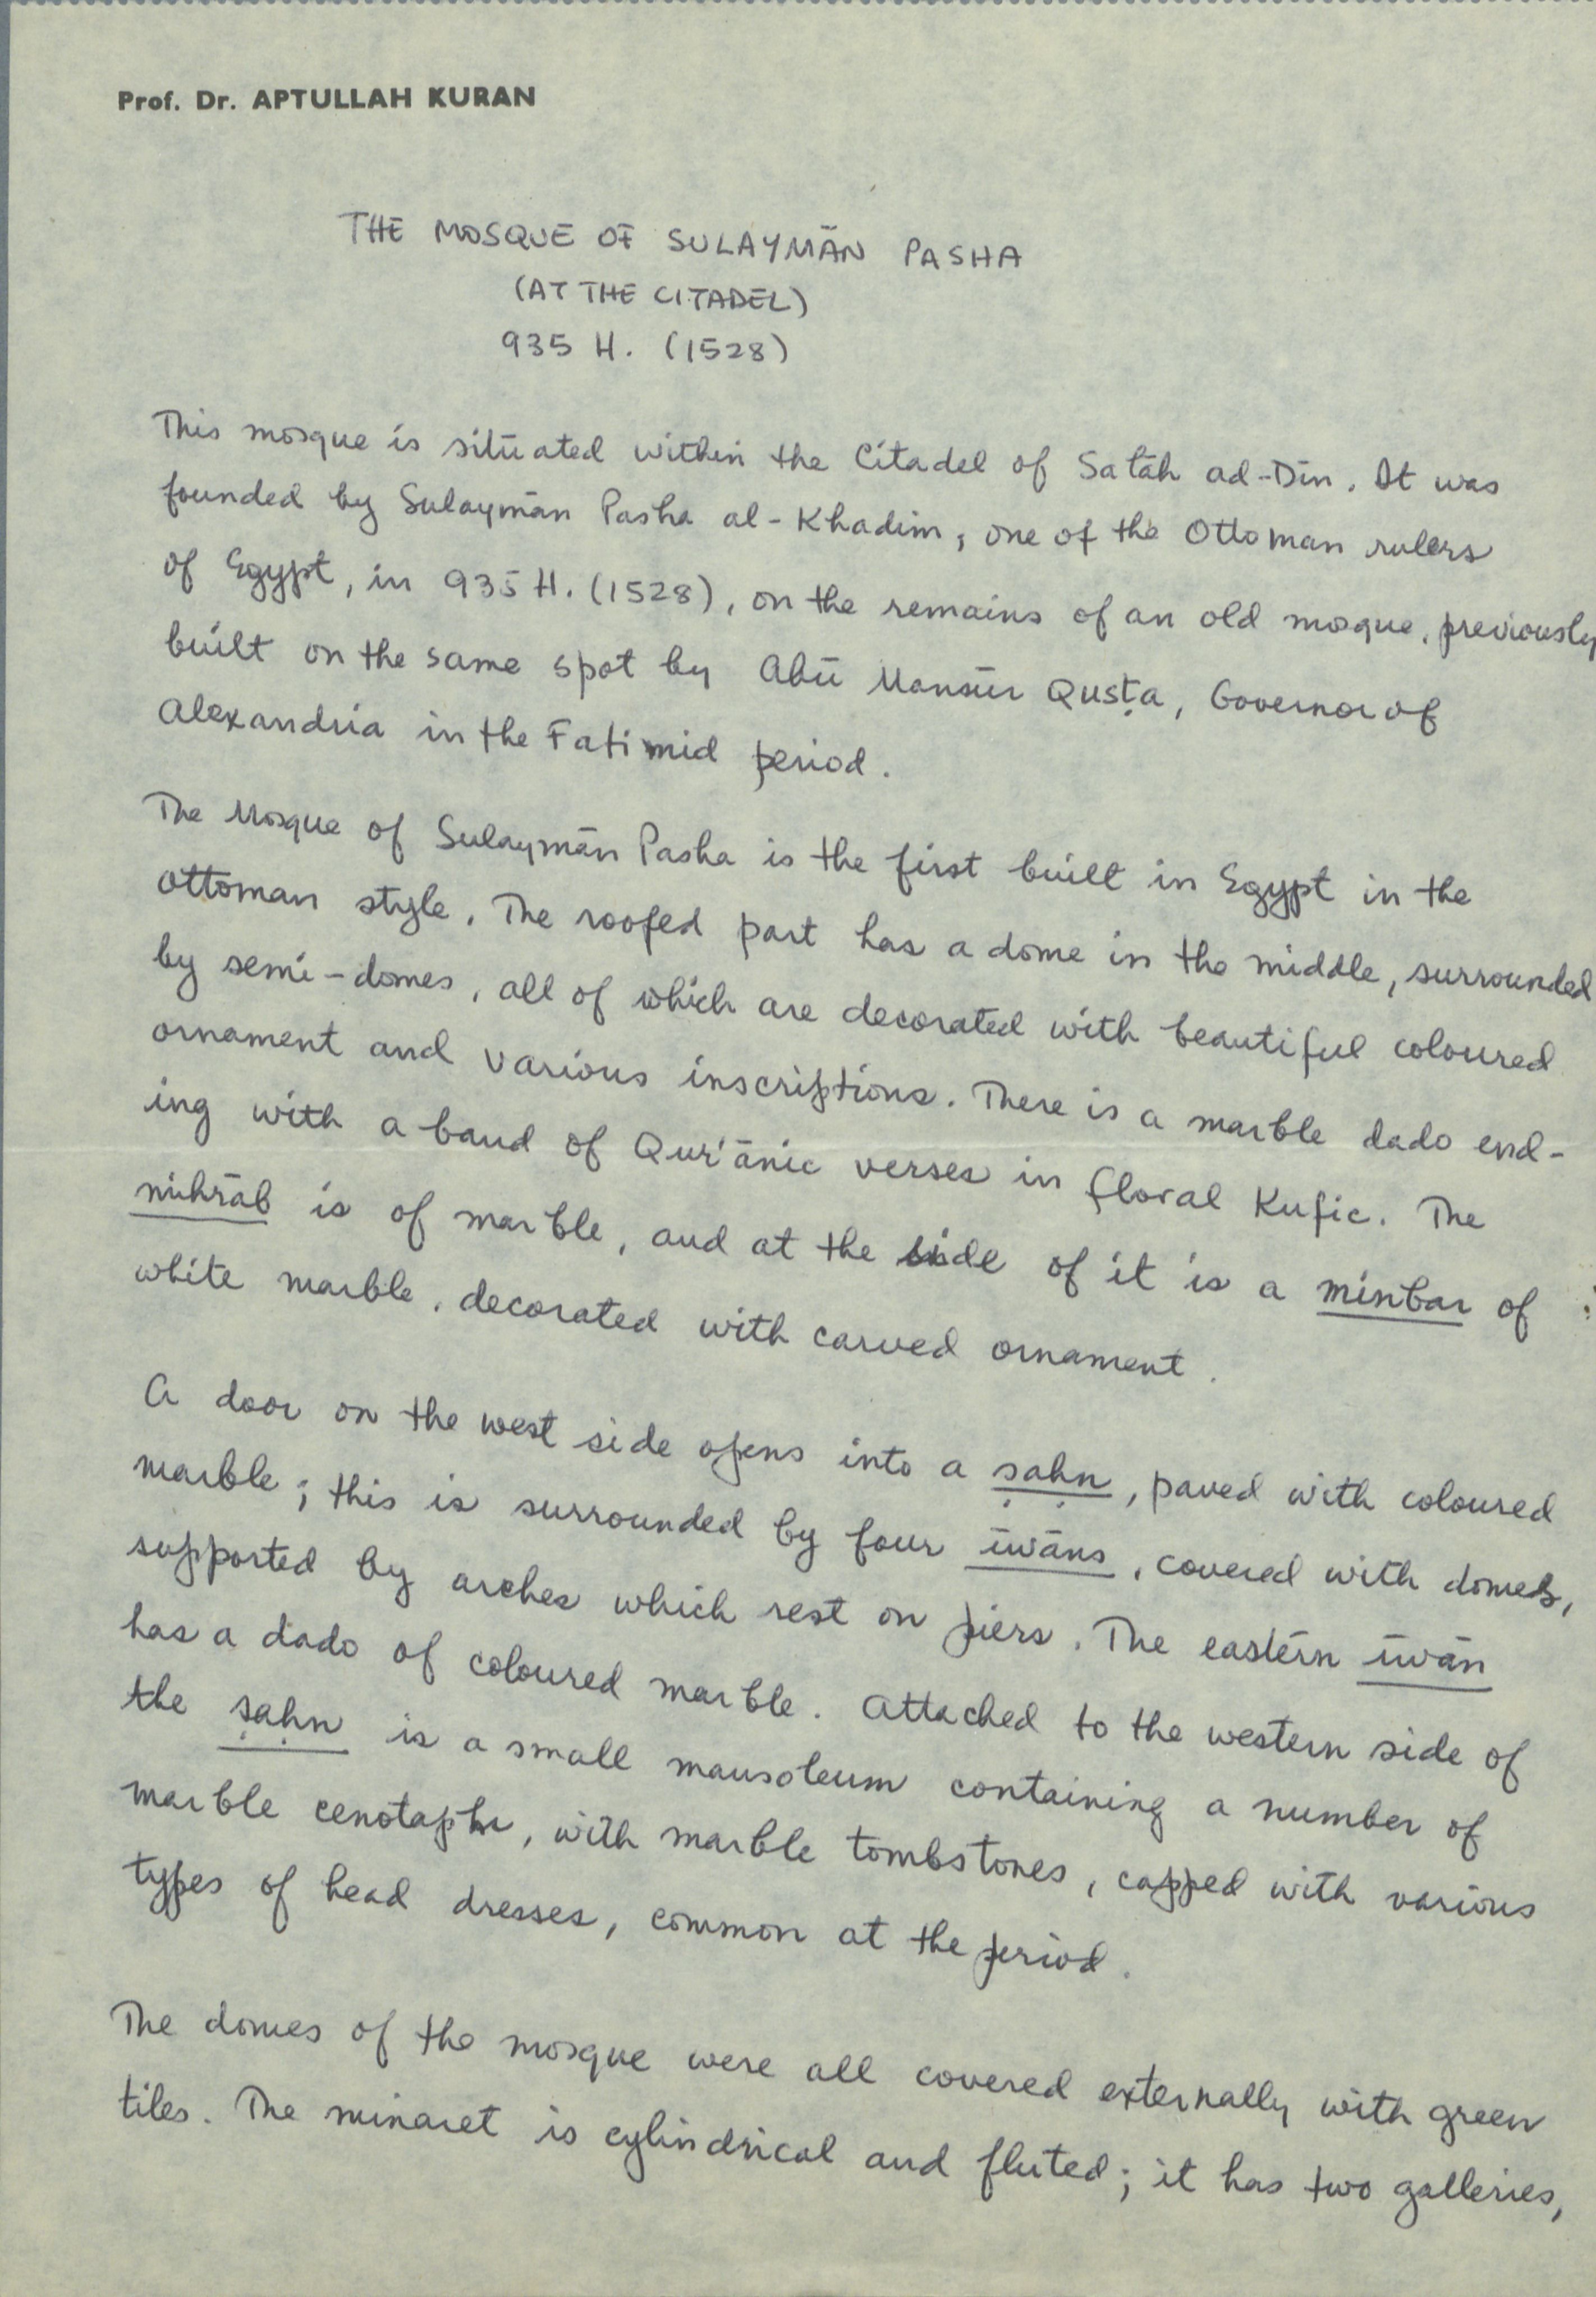 Prof. Dr. APTULLAH KURAN
THE MOSQUE OF SULAYMĀN PASHA
(AT THE CITADEL)
935 H. (1528)
This mosque is situated within the Citadel of Salāh ad-Din. It was
founded by Sulaymān Pasha al-Khadim, one of the Ottoman rulers
of Egypt, in 935 H. (1528), on the remains of an old mosque, previously
built on the same spot by Abū Mansūr Qusṭa, Governor of
Alexandria in the Fatimid period.
The Mosque of Sulaymān Pasha is the first built in Egypt in the
Ottoman style. The roofed part has a dome in the middle, surrounded
by semi-domes, all of which are decorated with beautiful coloured
ornament and various inscriptions. There is a marble dado end-
ing with a band of Qur'ānic verses in floral Kufic. The
mihrāb is of marble, and at the side of it is a minbar of
white marble, decorated with carved ornament.
A door on the west side opens into a ṣaḥn, paved with coloured
marble; this is surrounded by four īwāns, covered with domes,
supported by arches which rest on piers. The eastern īwān
has a dado of coloured marble. Attached to the western side of
the ṣaḥn is a small mausoleum containing a number of
marble cenotaphs, with marble tombstones, capped with various
types of head dresses, common at the period.
The domes of the mosque were all covered externally with green
tiles. The minaret is cylindrical and fluted; it has two galleries,